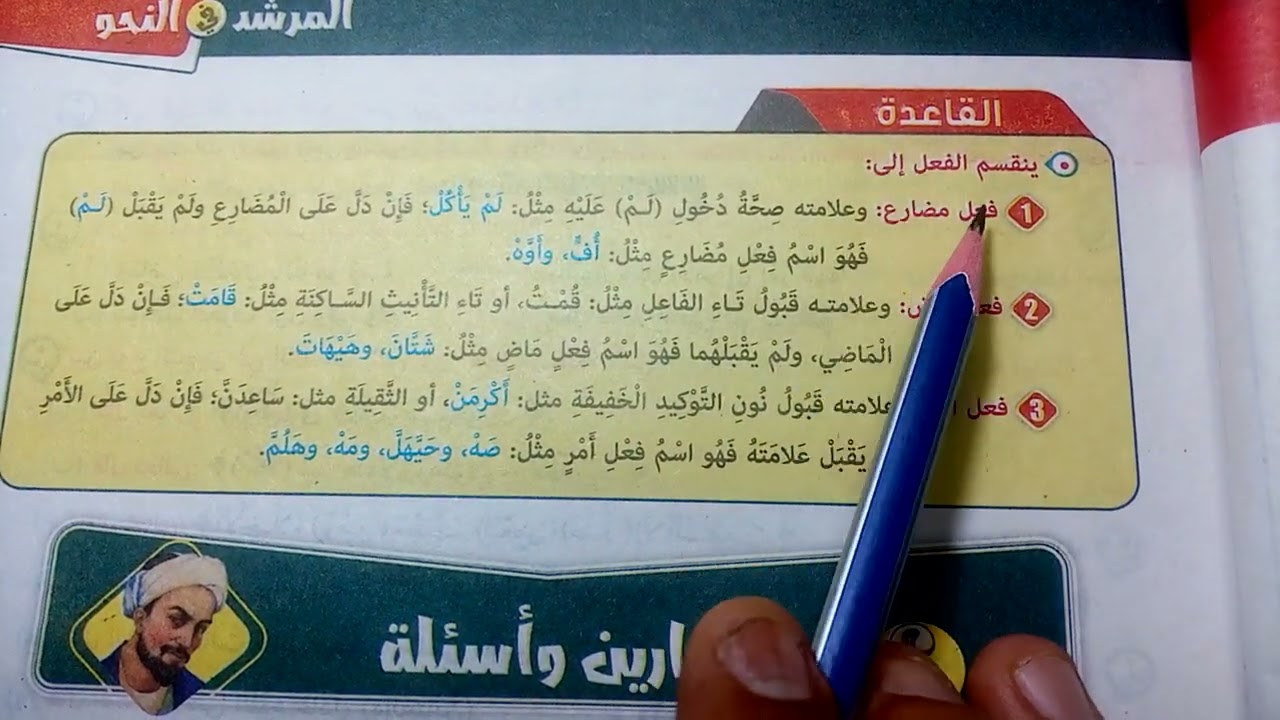 المرشد في النحو
القاعدة
ينقسم الفعل إلى:
1 فعل مضارع: وعلامته صِحَّةُ دُخُولِ (لَـمْ) عَلَيْهِ مِثْلُ: لَمْ يَأْكُلْ؛ فَإِنْ دَلَّ عَلَى الْمُضَارِعِ ولَمْ يَقْبَلْ (لَـمْ)
فَهُوَ اسْمُ فِعْلِ مُضَارِعٍ مِثْلُ: أُفٍّ، وأَوَّهْ.
2 وعلامتـه قَبُولُ تَـاءِ الفَاعِلِ مِثْلُ: قُمْـتُ، أو تَاءِ التَّأْنِيثِ السَّـاكِنَةِ مِثْلُ: قَامَتْ؛ فَـإِنْ دَلَّ عَلَى
الْمَاضِي، ولَمْ يَقْبَلْهُما فَهُوَ اسْمُ فِعْلٍ مَاضٍ مِثْلُ: شَتَّانَ، وهَيْهَاتَ.
3 فعل قَبُولُ نُونِ التَّوْكِيدِ الْخَفِيفَةِ مثل: أَكْرِمَنْ، أو الثَّقِيلَةِ مثل: سَاعِدَنَّ؛ فَإِنْ دَلَّ عَلَى الأَمْرِ
يَقْبَلْ عَلَامَتَهُ فَهُو اسْمُ فِعْلِ أَمْرٍ مِثْلُ: صَهْ، وحَيَّهَلَّ، ومَهْ، وهَلُمَّ.
وأسئلة